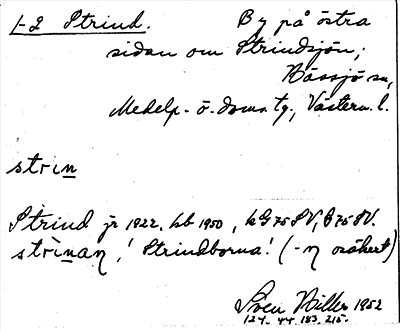 1-2 Strind. By på östra
sidan om Strindsjön;
Hässjö sn,
Medelp. ö. doms. tg., Västern. l.
strin
Strind jr 1922. kb 1950, kG 75 SV, B 75 SV.
strìnaŋ, ! Strindborna! (-ŋ osäkert)
Sven Hiller 1952
124. 44 183. 215.